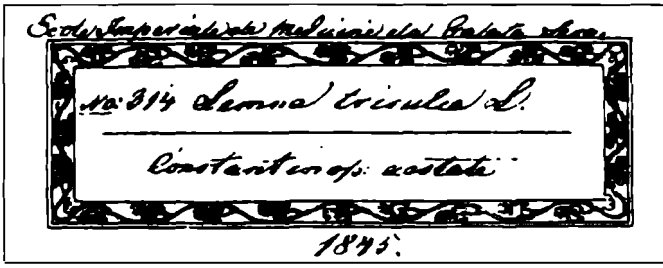 Ecole Imperiale de Medicine de Galata Serai.
No: 314 Lemna trisulca L.
Constantinop: aestate
1845.